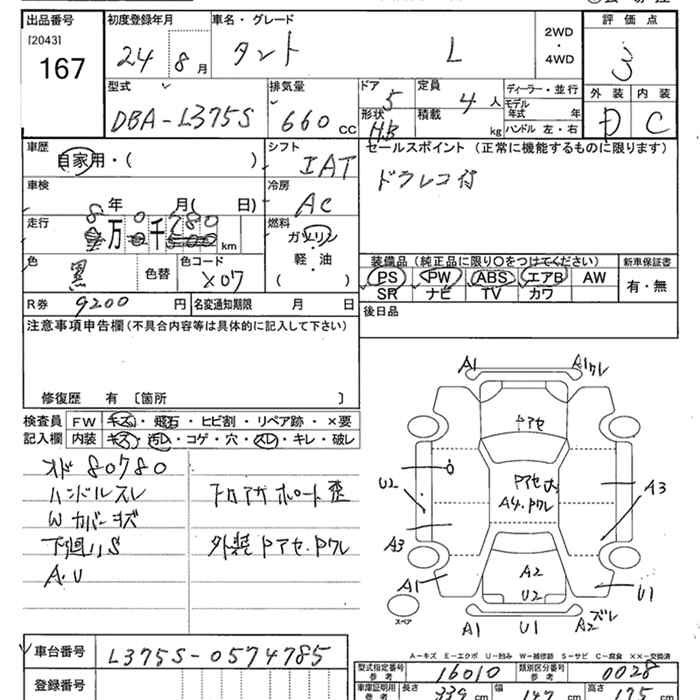 出品番号 初度登録年月 車名・グレード 評価点
[2043] 24 8月 タント L 2WD・4WD 3
167
型式 排気量 ドア 定員 ディーラー・並行 外装 内装
DBA-L375S 660cc 5 4人 モデル年式 年 D C
形状 H.B 積載 kg ハンドル 左・右
車歴 シフト セールスポイント (正常に機能するものに限ります)
自家用・( ) IAT ドラレコ付
車検 冷房
8年 月( 日) AC
走行 燃料
8万0千780km ガソリン・軽油 ( )
色 色替 色コード 装備品(純正品に限り○をつけてください) 新車保証書
黒 X07 PS PW ABS エアB AW 有・無
SR ナビ TV カワ
R券 9200円 名変通知期限 月 日 後日品
注意事項申告欄(不具合内容等は具体的に記入して下さい)
修復歴 有 〔箇所 〕
検査員 FW キズ・飛石・ヒビ割・リペア跡・×要
記入欄 内装 キズ・汚レ・コゲ・穴・スレ・キレ・破レ
メド 80780
ハンドルスレ
Wカバーキズ
下廻リS
A.U
外装 Pアセ.Pワレ
A1 A1 ワレ
Pアセ
U2 A3
A4.Pワレ
A3
A1 A2 U2 U1
スペア A1 U1 A2 ズレ
A－キズ E－エクボ U－凹み W－補修跡 S－サビ C－腐食 ××－交換済
車台番号 L375S-0574785
型式指定番号 参考 16010 類別区分番号 参考 0028
登録番号 車庫証明用 参考 長さ 339cm 幅 147cm 高さ 175cm